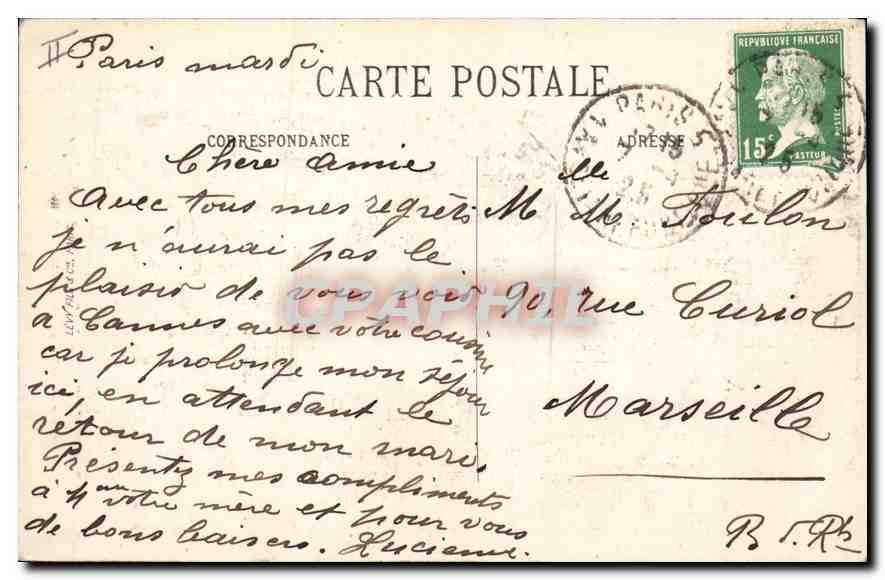 II
Paris mardi
CARTE POSTALE
REPUBLIQUE FRANÇAISE
15c
POSTES
PASTEUR
PARIS
CORRESPONDANCE
ADRESSE
Chère amie
Avec tous mes regrets
je n'aurai pas le
plaisir de vous voir
a Cannes avec votre cousine
car je prolonge mon séjour
ici, en attendant le
retour de mon mari.
Présentez mes compliments
à Mme votre mère et pour vous
de bons baisers. Lucienne.
Mlle M. Toulon
90, rue Curiol
Marseille
B d. Rh
CPAPHIL